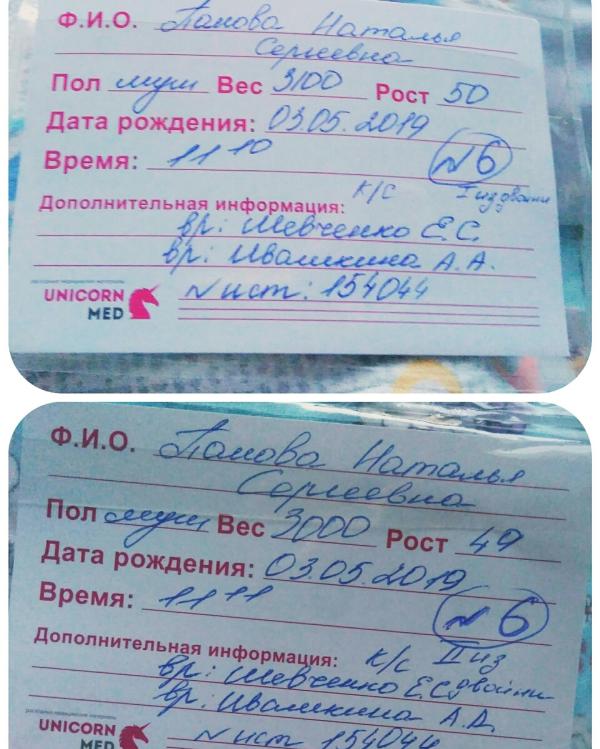 Ф.И.О. Панова Наталья
Сергеевна
Пол муж Вес 3100 Рост 50
Дата рождения: 03.05.2019
Время: 11 10 №6
Дополнительная информация: к/с I из двойни
вр: Шевченко Е.С.
вр: Ивашкина А.А.
UNICORN № ист: 154044
MED
Ф.И.О. Панова Наталья
Сергеевна
Пол муж Вес 3000 Рост 49
Дата рождения: 03.05.2019
Время: 11 11 №6
Дополнительная информация: к/с II из
вр: Шевченко Е.С. двойни
вр: Ивашкина А.А.
UNICORN № ист 154044
MED